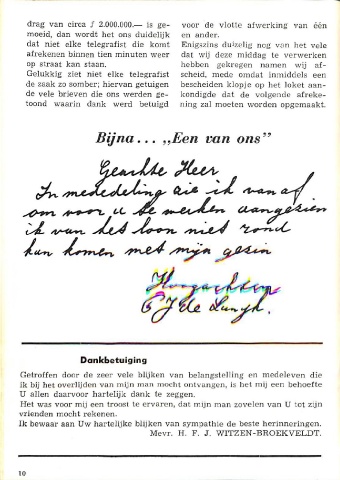 drag van circa ƒ 2.000.000.— is ge-
moeid, dan wordt het ons duidelijk
dat niet elke telegrafist die komt
afrekenen binnen tien minuten weer
op straat kan staan.
Gelukkig ziet niet elke telegrafist
de zaak zo somber; hiervan getuigen
de vele brieven die ons werden ge-
toond waarin dank werd betuigd
voor de vlotte afwerking van één
en ander.
Enigszins duizelig nog van het vele
dat wij deze middag te verwerken
hebben gekregen namen wij af-
scheid, mede omdat inmiddels een
bescheiden klopje op het loket aan-
kondigde dat de volgende afreke-
ning zal moeten worden opgemaakt.
Bijna... „Een van ons”
Geachte Heer
In mededeling die ik van af
om voor u te werken aangezien
ik van het loon niet rond
kan komen met mijn gesin
Hoogachten
J de Langh.
Dankbetuiging
Getroffen door de zeer vele blijken van belangstelling en medeleven die
ik bij het overlijden van mijn man mocht ontvangen, is het mij een behoefte
U allen daarvoor hartelijk dank te zeggen.
Het was voor mij een troost te ervaren, dat mijn man zovelen van U tot zijn
vrienden mocht rekenen.
Ik bewaar aan Uw hartelijke blijken van sympathie de beste herinneringen.
Mevr. H. F. J. WITZEN-BROEKVELDT.
10